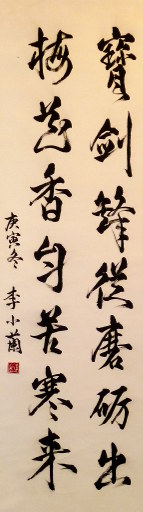 寶劍鋒從磨砺出
梅花香自苦寒来
庚寅冬 李小蘭